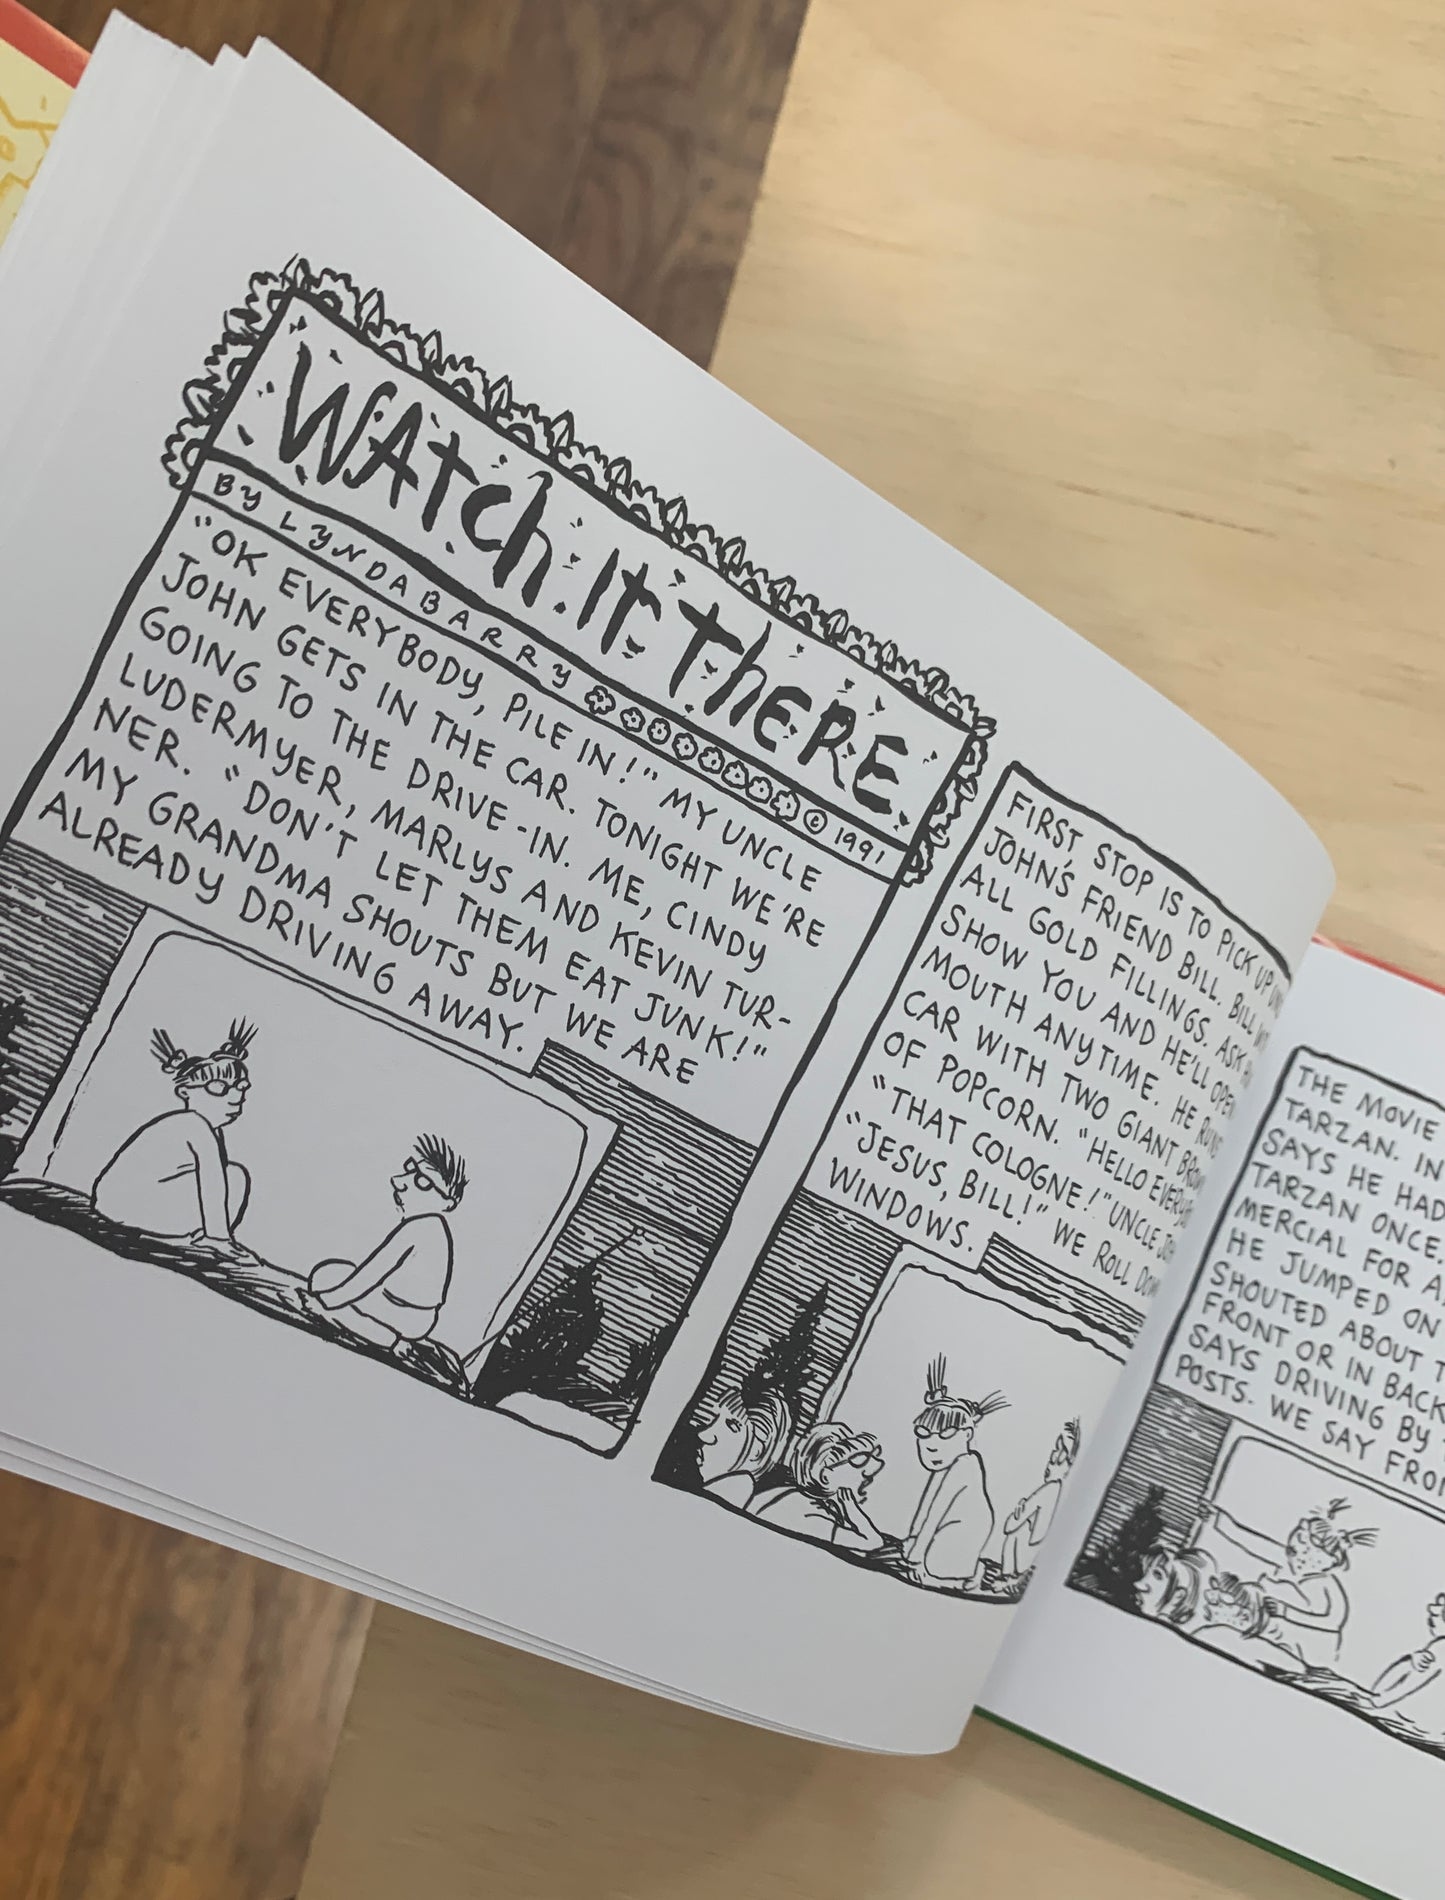 WATCH IT THERE
BY LYNDA BARRY © 1991
"OK EVERYBODY, PILE IN!" MY UNCLE
JOHN GETS IN THE CAR. TONIGHT WE'RE
GOING TO THE DRIVE-IN. ME, CINDY
LUDERMYER, MARLYS AND KEVIN TUR-
NER. "DON'T LET THEM EAT JUNK!"
MY GRANDMA SHOUTS BUT WE ARE
ALREADY DRIVING AWAY.
FIRST STOP IS TO PICK UP
JOHN'S FRIEND BILL. BILL
ALL GOLD FILLINGS. ASK
SHOW YOU AND HE'LL OPEN
MOUTH ANYTIME. HE RUNS
CAR WITH TWO GIANT
OF POPCORN. "HELLO
"THAT COLOGNE!" UNCLE
"JESUS, BILL!" WE ROLL DOWN
WINDOWS.
THE MOVIE
TARZAN. IN
SAYS HE HAD
TARZAN ONCE.
MERCIAL FOR
HE JUMPED ON
SHOUTED ABOUT
FRONT OR IN BACK
SAYS DRIVING BY
POSTS. WE SAY